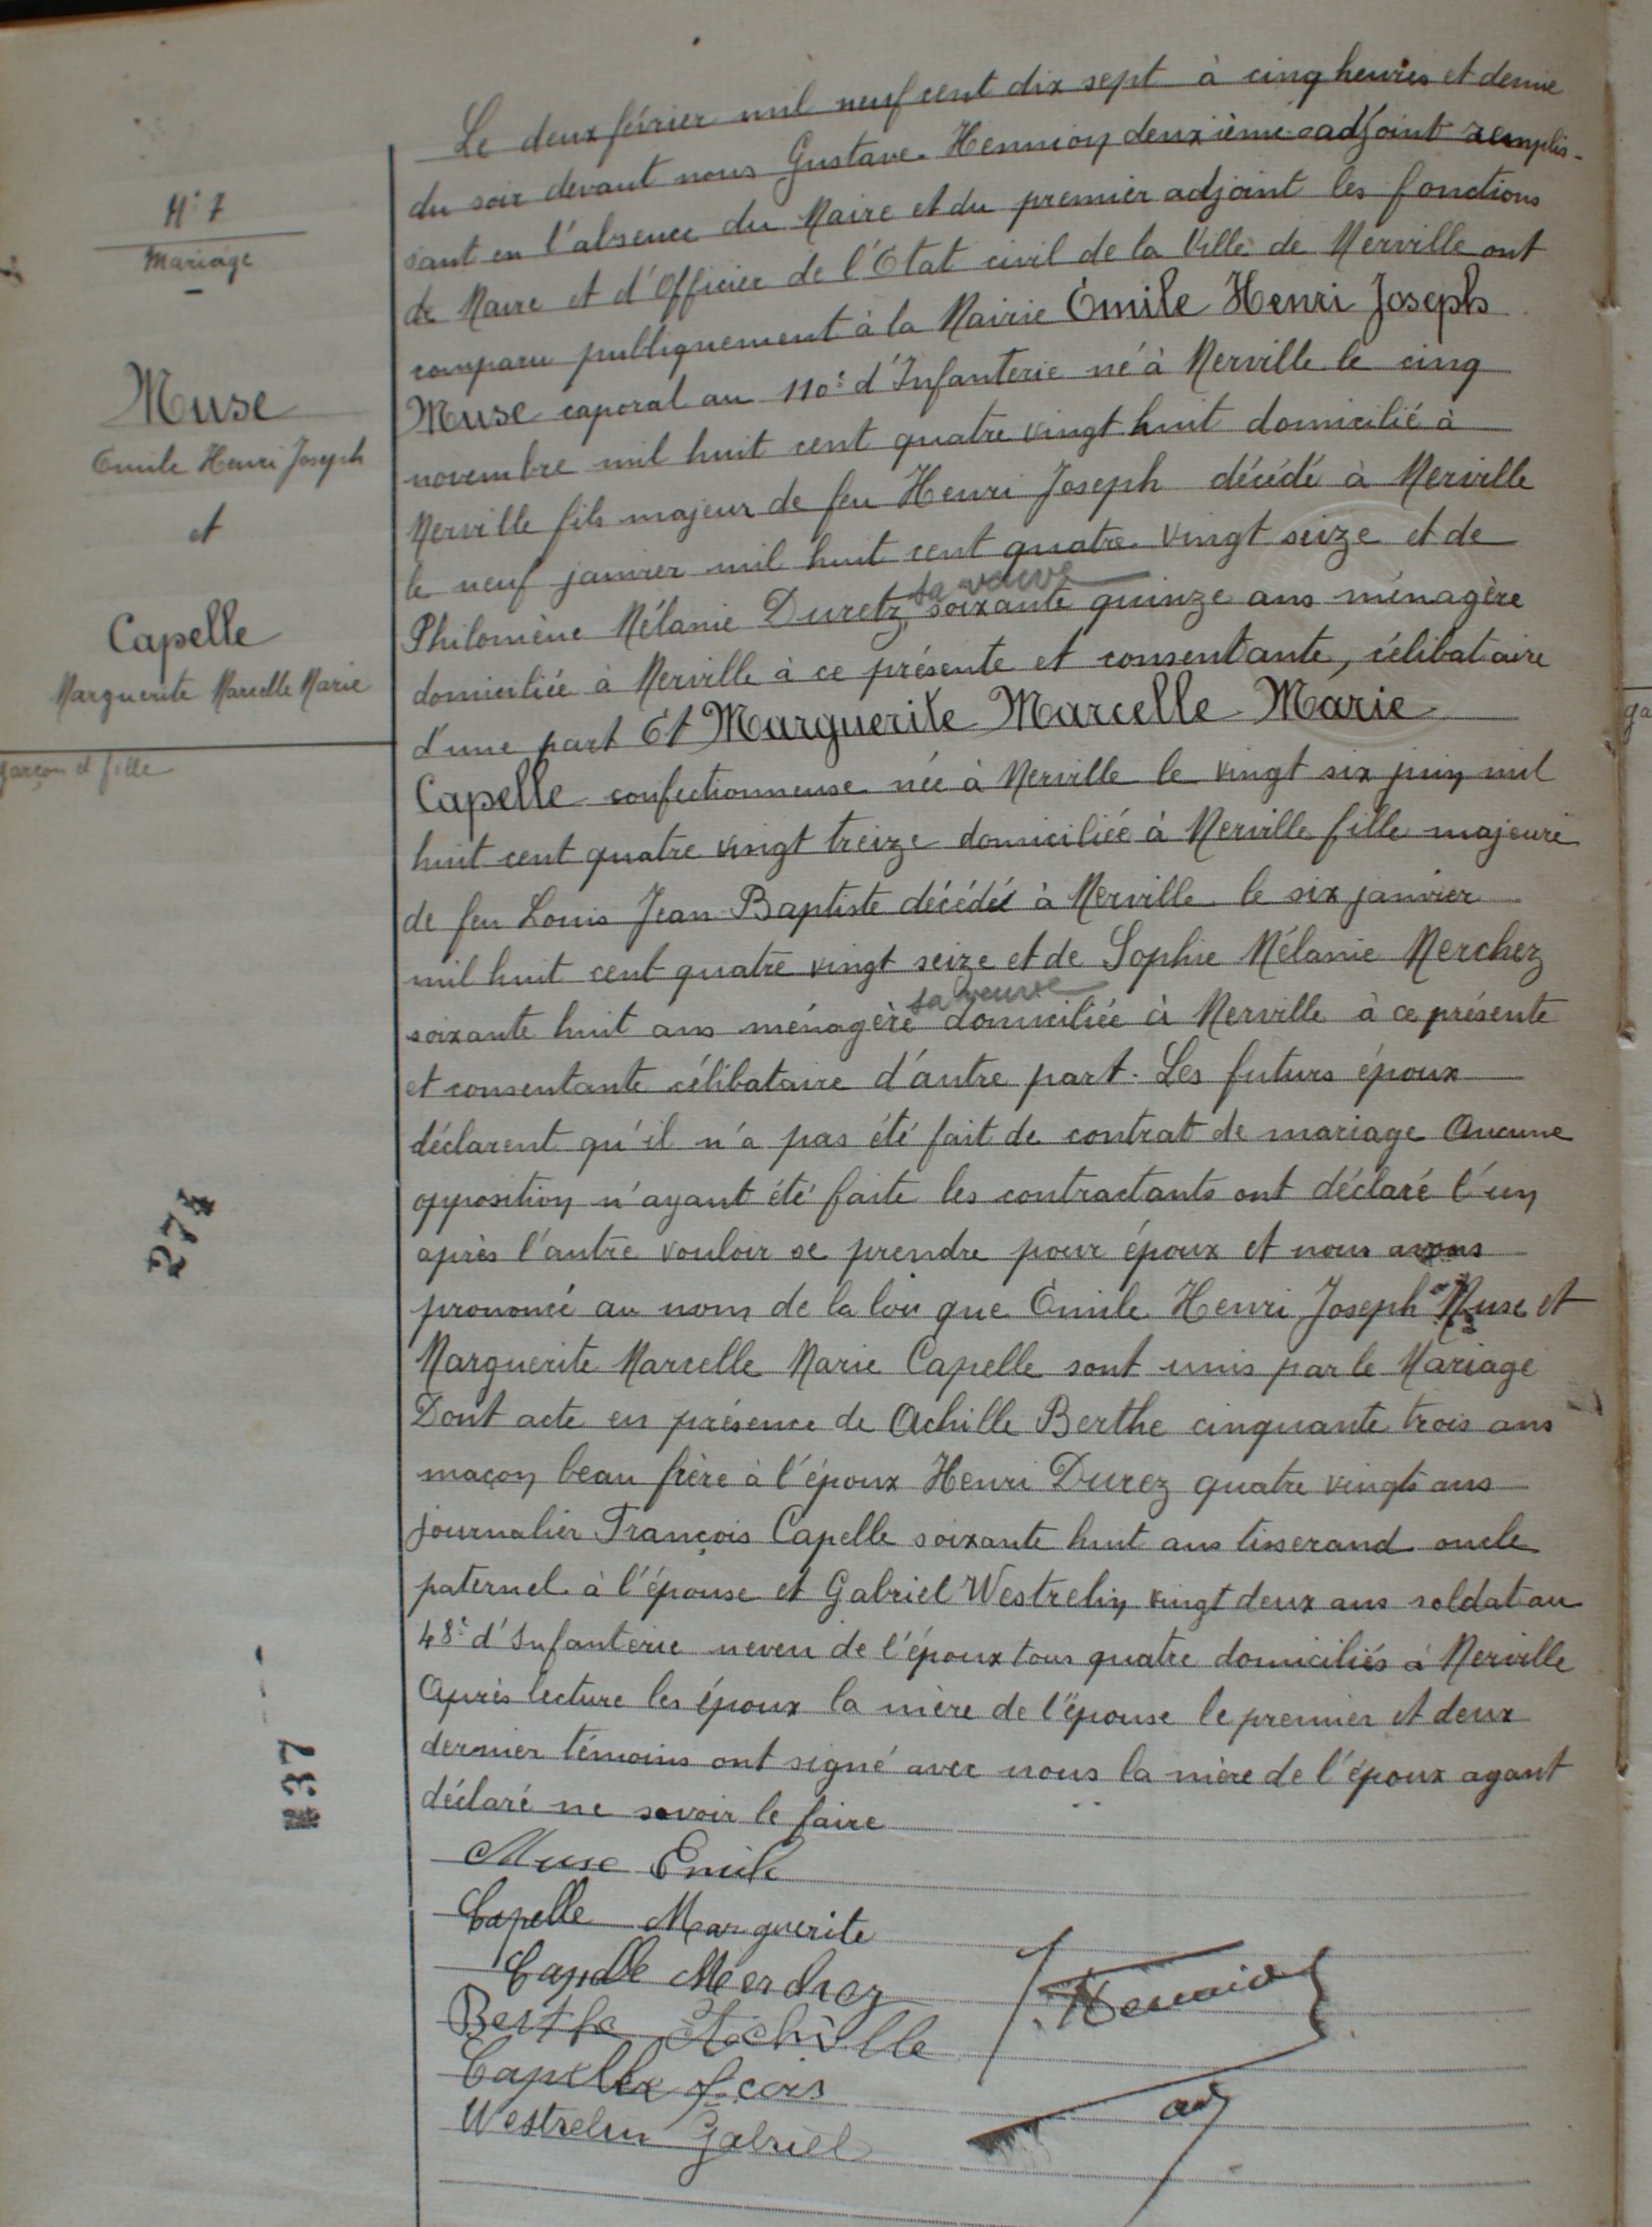 N° 7
Mariage
Muse
Emile Henri Joseph
et
Capelle
Marguerite Marcelle Marie
garçon et fille
274
37
Le deux février mil neuf cent dix sept à cinq heures et demie
du soir devant nous Gustave Hennion deuxième adjoint remplis-
sant en l'absence du Maire et du premier adjoint les fonctions
de Maire et d'Officier de l'Etat civil de la Ville de Merville ont
comparu publiquement à la Mairie Émile Henri Joseph
Muse caporal au 110e d'Infanterie né à Merville le cinq
novembre mil huit cent quatre vingt huit domicilié à
Merville fils majeur de feu Henri Joseph décédé à Merville
le neuf janvier mil huit cent quatre vingt seize et de
sa veuve
Philomène Mélanie Duretz, soixante quinze ans ménagère
domiciliée à Merville à ce présente et consentante, célibataire
d'une part Et Marguerite Marcelle Marie
Capelle confectionneuse née à Merville le vingt six juin mil
huit cent quatre vingt treize domiciliée à Merville fille majeure
de feu Louis Jean Baptiste décédé à Merville le six janvier
mil huit cent quatre vingt seize et de Sophie Mélanie Merchez
sa veuve
soixante huit ans ménagère domiciliée à Merville à ce présente
et consentante célibataire d'autre part. Les futurs époux
déclarent qu'il n'a pas été fait de contrat de mariage Aucune
opposition n'ayant été faite les contractants ont déclaré l'un
après l'autre vouloir se prendre pour époux et nous avons
prononcé au nom de la loi que Émile Henri Joseph Muse et
Marguerite Marcelle Marie Capelle sont unis par le Mariage
Dont acte en présence de Achille Berthe cinquante trois ans
maçon beau frère à l'époux Henri Durez quatre vingts ans
journalier François Capelle soixante huit ans tisserand oncle
paternel à l'épouse et Gabriel Westrelin vingt deux ans soldat au
48e d'Infanterie neveu de l'époux tous quatre domiciliés à Merville
Après lecture les époux la mère de l'épouse le premier et deux
dernier témoins ont signé avec nous la mère de l'époux ayant
déclaré ne savoir le faire
Muse Emile
Capelle Marguerite
Capelle Merchez
Berthe Achille
G. Hennion
Capelle fcois
adj
Westrelin Gabriel